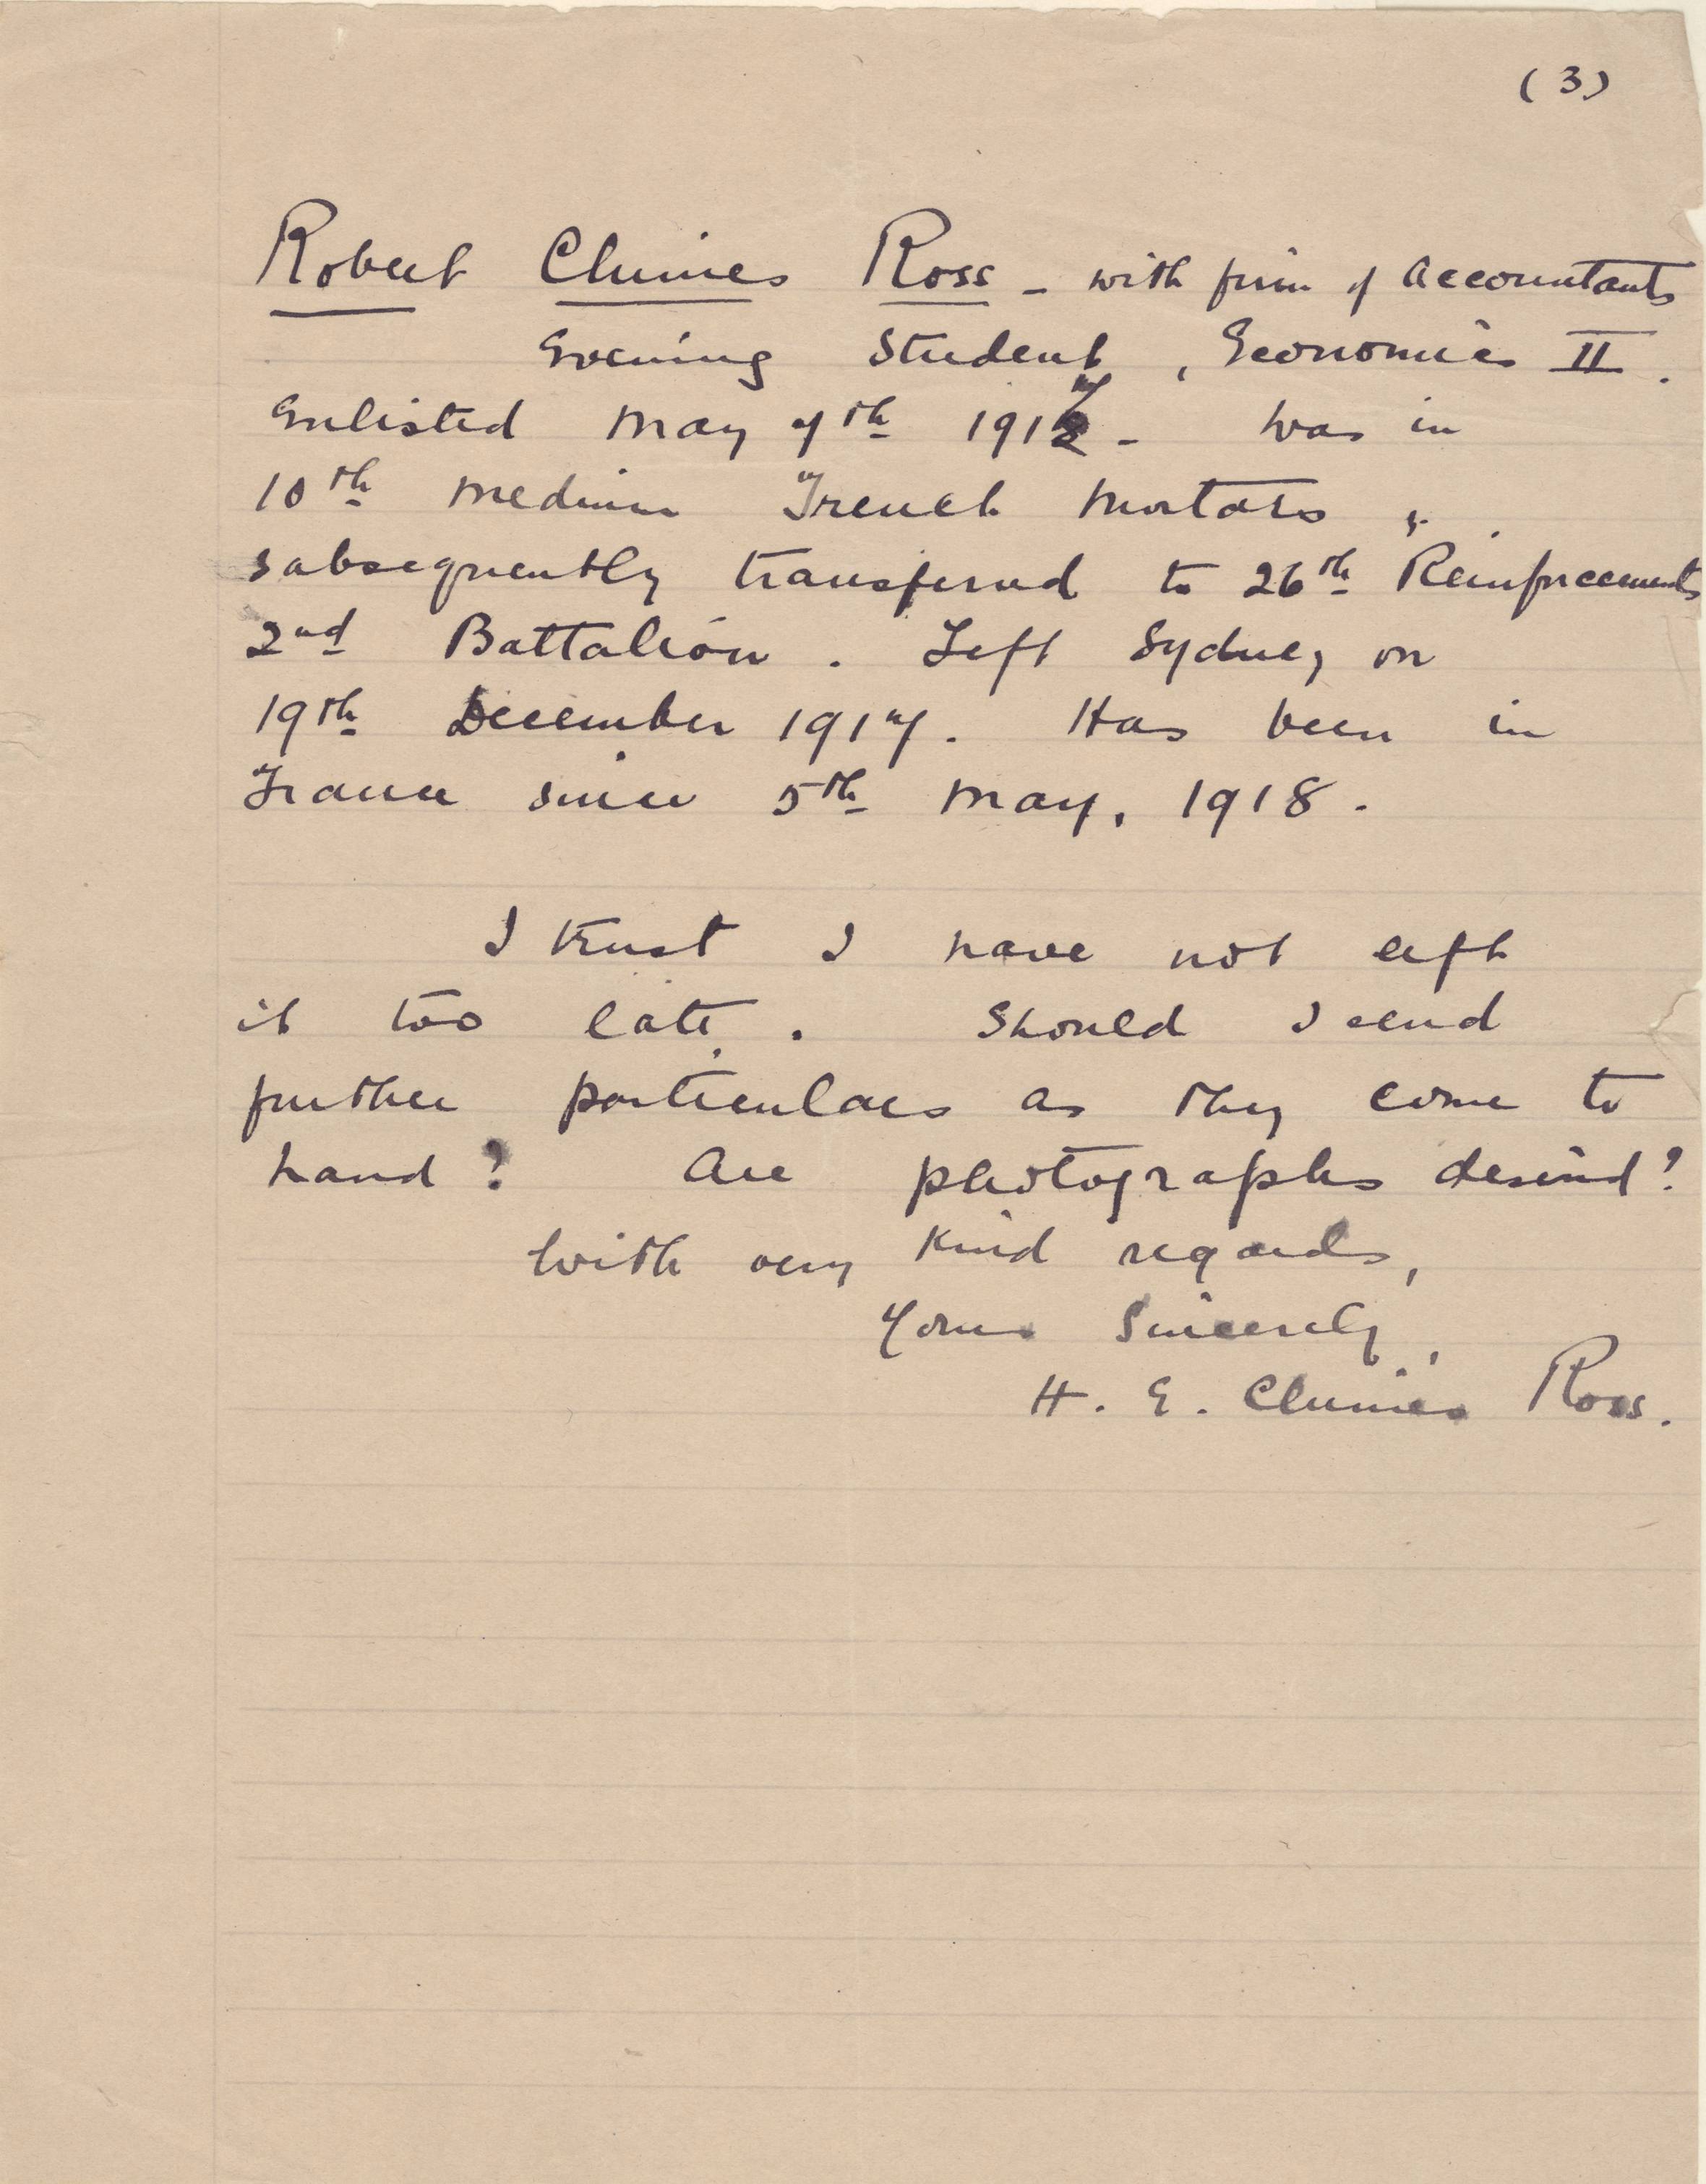 (3)
Robert Clunies Ross - with firm of Accountants
Evening Student, Economics II.
Enlisted May 7th 1917 - was in
10th Medium Trench Mortars &
subsequently transferred to 26th Reinforcements
2nd Battalion. Left Sydney on
19th December 1917. Has been in
France since 5th May, 1918.
I trust I have not left
it too late. Should I send
further particulars as they come to
hand? Are photographs desired?
With very kind regards,
Yours Sincerely,
H. E. Clunies Ross.